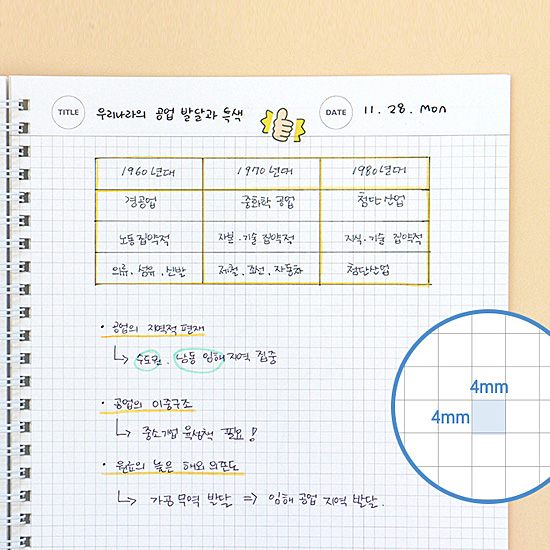 TITLE 우리나라의 공업 발달과 특색 DATE 11. 28. Mon
1960년대 1970년대 1980년대
경공업 중화학 공업 첨단산업
노동집약적 자본·기술 집약적 지식·기술 집약적
의류, 섬유, 신발 제철, 조선, 자동차 첨단산업
· 공업의 지역적 편재
↳ 수도권, 남동 임해지역 집중
4mm
4mm
· 공업의 이중구조
↳ 중소기업 육성책 필요!
· 원료의 높은 해외 의존도
↳ 가공무역 발달 ⇒ 임해 공업 지역 발달.